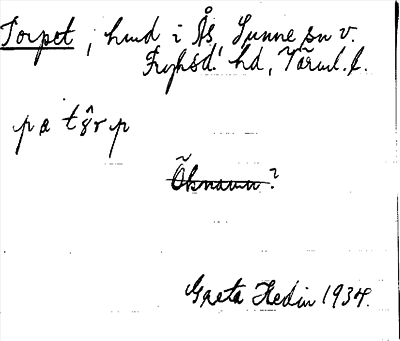 Torpet, hmd i Ås, Sunne sn v.
Fryksd. hd, Värml. l.
pa tô̬rp
Öknamn?
Greta Hedin 1934.